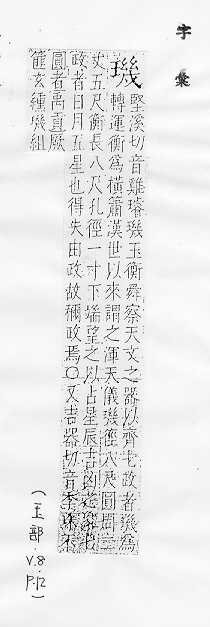 字彙
璣
堅溪切音雞璿璣玉衡舜察天文之器以齊七政者璣為
轉運衡為橫簫漢世以來謂之渾天儀璣徑八尺圓周二
丈五尺衡長八尺孔徑一寸下端望之以占星辰吉凶
政者日月五星也得失由政故稱政焉〇又吉器切音季珠不
圓者禹貢厥
篚玄纁璣組
(玉部.V.8.P.12)